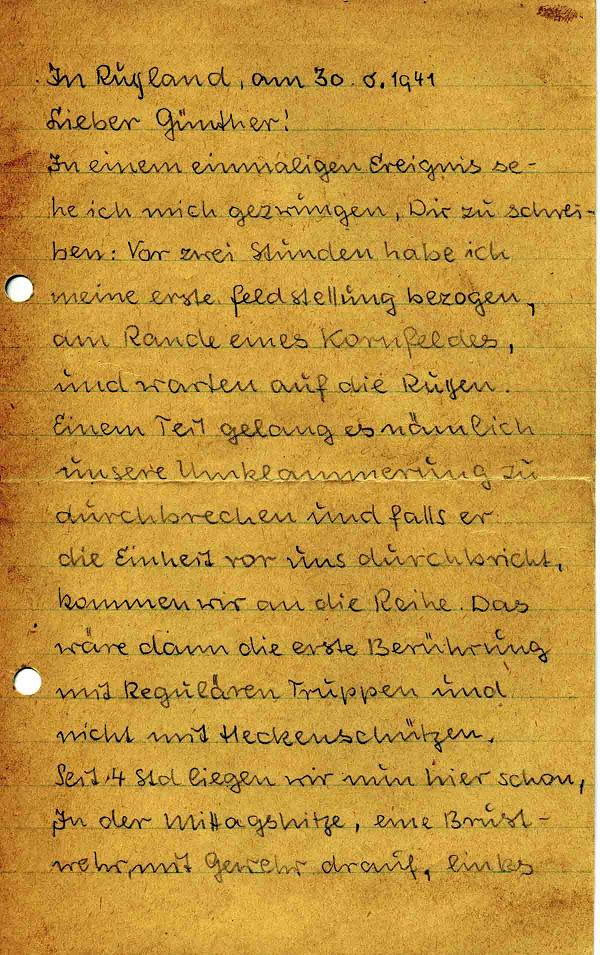 In Rußland, am 30. 8. 1941
Lieber Günther!
In einem einmaligen Ereignis se-
he ich mich gezwungen, Dir zu schrei-
ben: Vor zwei Stunden habe ich
meine erste Feldstellung bezogen,
am Rande eines Kornfeldes,
und warten auf die Rußen.
Einem Teil gelang es nämlich
unsere Umklammerung zu
durchbrechen und falls er
die Einheit vor uns durchbricht,
kommen wir an die Reihe. Das
wäre dann die erste Berührung
mit Regulären Truppen und
nicht mit Heckenschützen.
Seit 4 Std liegen wir nun hier schon,
In der Mittagshitze, eine Brust-
wehr, mit Gewehr drauf, links